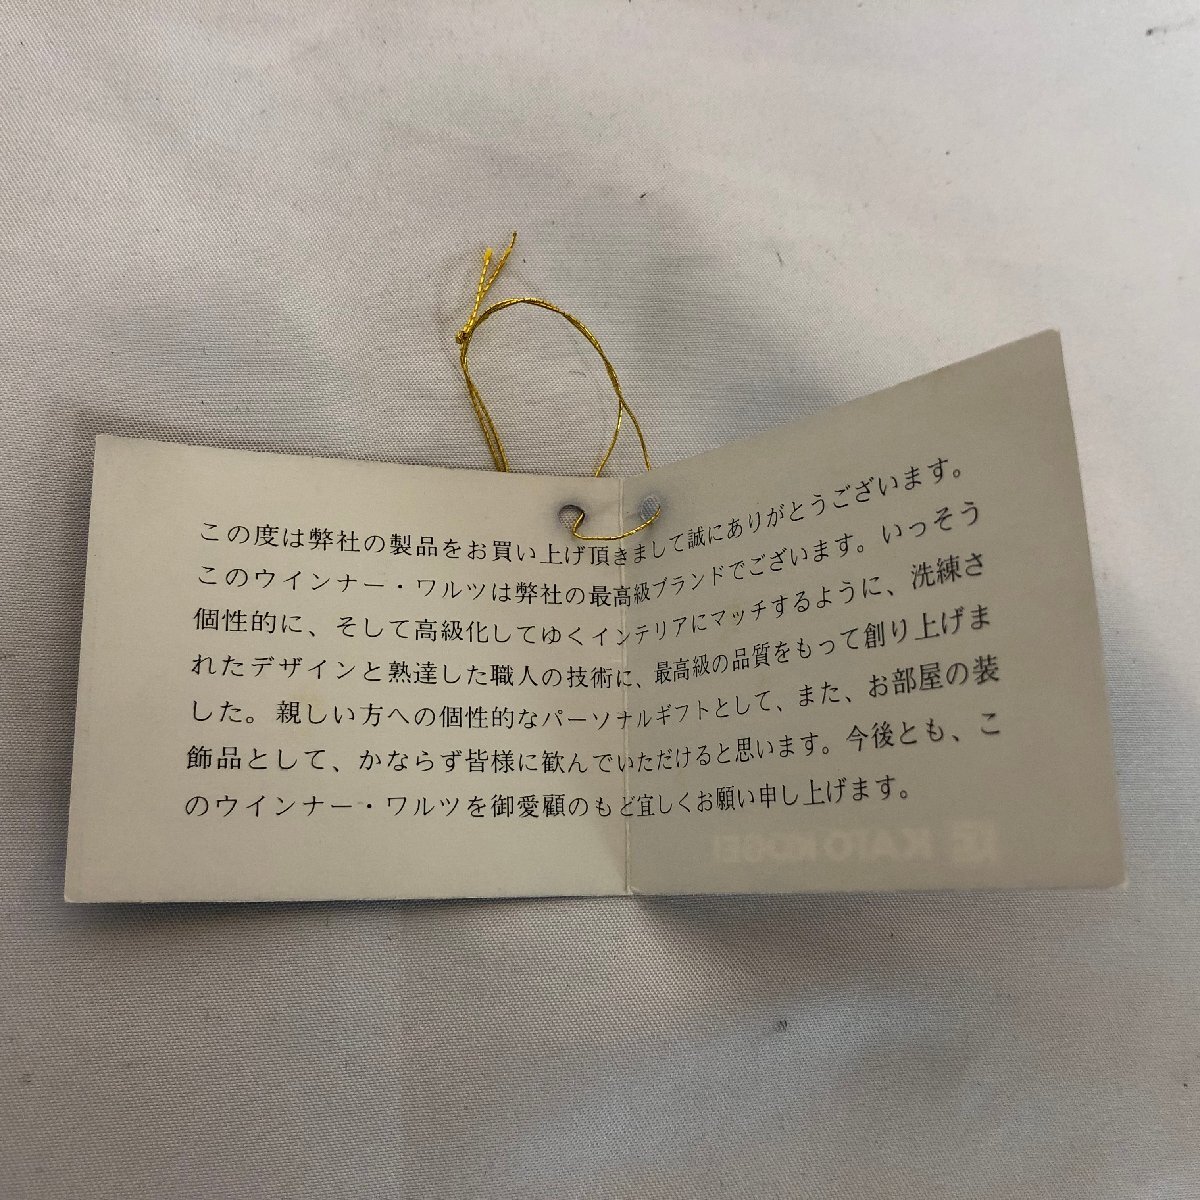 この度は弊社の製品をお買い上げ頂きまして誠にありがとうございます。
このウインナー・ワルツは弊社の最高級ブランドでございます。いっそう
個性的に、そして高級化してゆくインテリアにマッチするように、洗練さ
れたデザインと熟達した職人の技術に、最高級の品質をもって創り上げま
した。親しい方への個性的なパーソナルギフトとして、また、お部屋の装
飾品として、かならず皆様に歓んでいただけると思います。今後とも、こ
のウインナー・ワルツを御愛顧のもど宜しくお願い申し上げます。